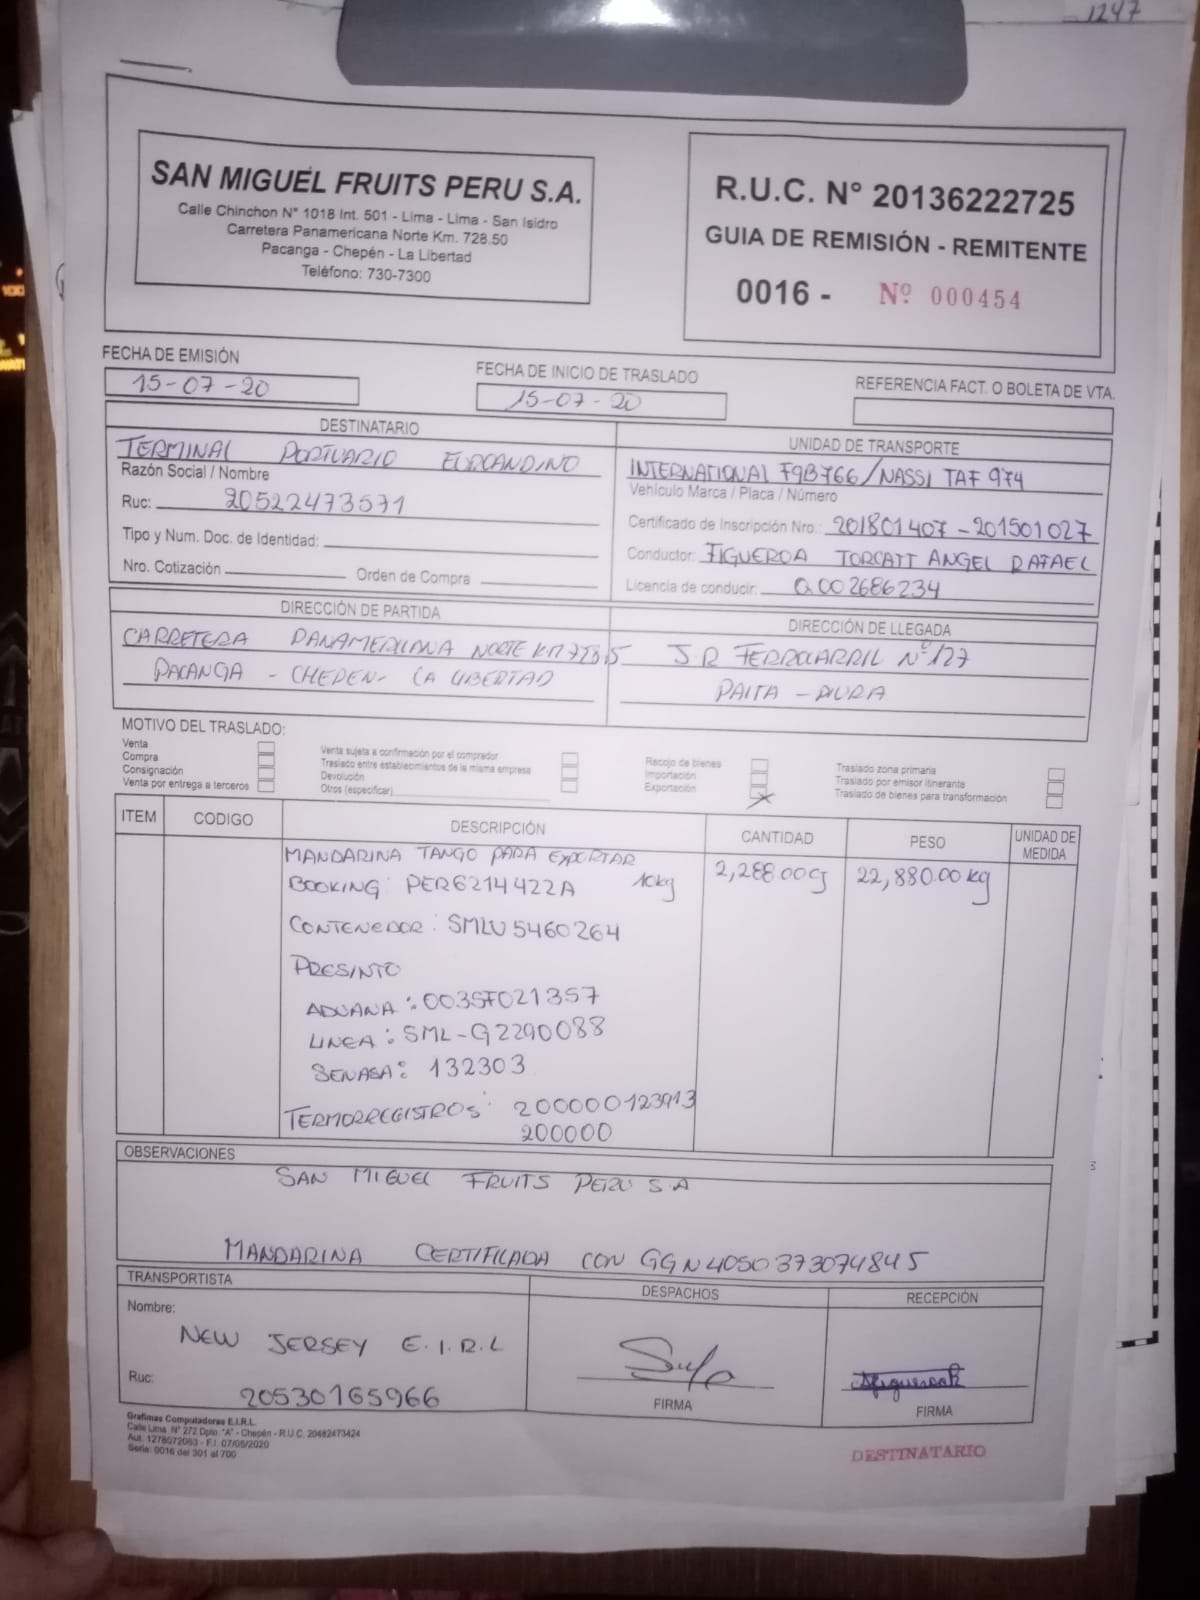 1247
SAN MIGUEL FRUITS PERU S.A.
Calle Chinchon N° 1018 Int. 501 - Lima - Lima - San Isidro
Carretera Panamericana Norte Km. 728.50
Pacanga - Chepén - La Libertad
Teléfono: 730-7300
R.U.C. N° 20136222725
GUIA DE REMISIÓN - REMITENTE
0016 - Nº 000454
FECHA DE EMISIÓN
15-07-20
FECHA DE INICIO DE TRASLADO
15-07-20
REFERENCIA FACT. O BOLETA DE VTA.
DESTINATARIO
TERMINAL PORTUARIO EUROANDINO
Razón Social / Nombre
Ruc: 20522473571
Tipo y Num. Doc. de Identidad:
Nro. Cotización Orden de Compra
UNIDAD DE TRANSPORTE
INTERNATIONAL F9B766/NASSI TAF 974
Vehículo Marca / Placa / Número
Certificado de Inscripción Nro.: 201801407-201501027
Conductor: FIGUEROA TORCATT ANGEL RAFAEL
Licencia de conducir: Q002686234
DIRECCIÓN DE PARTIDA
CARRETERA PANAMERICANA NORTE KM 728.5
PACANGA - CHEPEN- LA LIBERTAD
DIRECCIÓN DE LLEGADA
J.R FERROCARRIL Nº127
PAITA - PIURA
MOTIVO DEL TRASLADO:
Venta
Compra
Consignación
Venta por entrega a terceros
Venta sujeta a confirmación por el comprador
Traslado entre establecimientos de la misma empresa
Devolución
Otros (especificar)
Recojo de bienes
Importación
Exportación X
Traslado zona primaria
Traslado por emisor itinerante
Traslado de bienes para transformación
ITEM CODIGO DESCRIPCIÓN CANTIDAD PESO UNIDAD DE MEDIDA
MANDARINA TANGO PARA EXPORTAR
BOOKING: PER6214422A 10kg 2,288.00 22,880.00 kg
CONTENEDOR: SMLU5460264
PRESINTO
ADUANA: 003SF021357
LINEA: SML-G2290088
SENASA: 132303
TERMORREGISTROS: 200000123913
200000
OBSERVACIONES
SAN MIGUEL FRUITS PERU S.A
MANDARINA CERTIFICADA CON GGN4050373074845
TRANSPORTISTA
Nombre:
NEW JERSEY E.I.R.L
Ruc:
20530165966
DESPACHOS
FIRMA
RECEPCIÓN
FIRMA
Grafimas Computadoras E.I.R.L.
Calle Lima N° 272 Dpto. "A" - Chepén - R.U.C. 20482473424
Aut. 1278072063 - F.I. 07/05/2020
Serie: 0016 del 301 al 700
DESTINATARIO